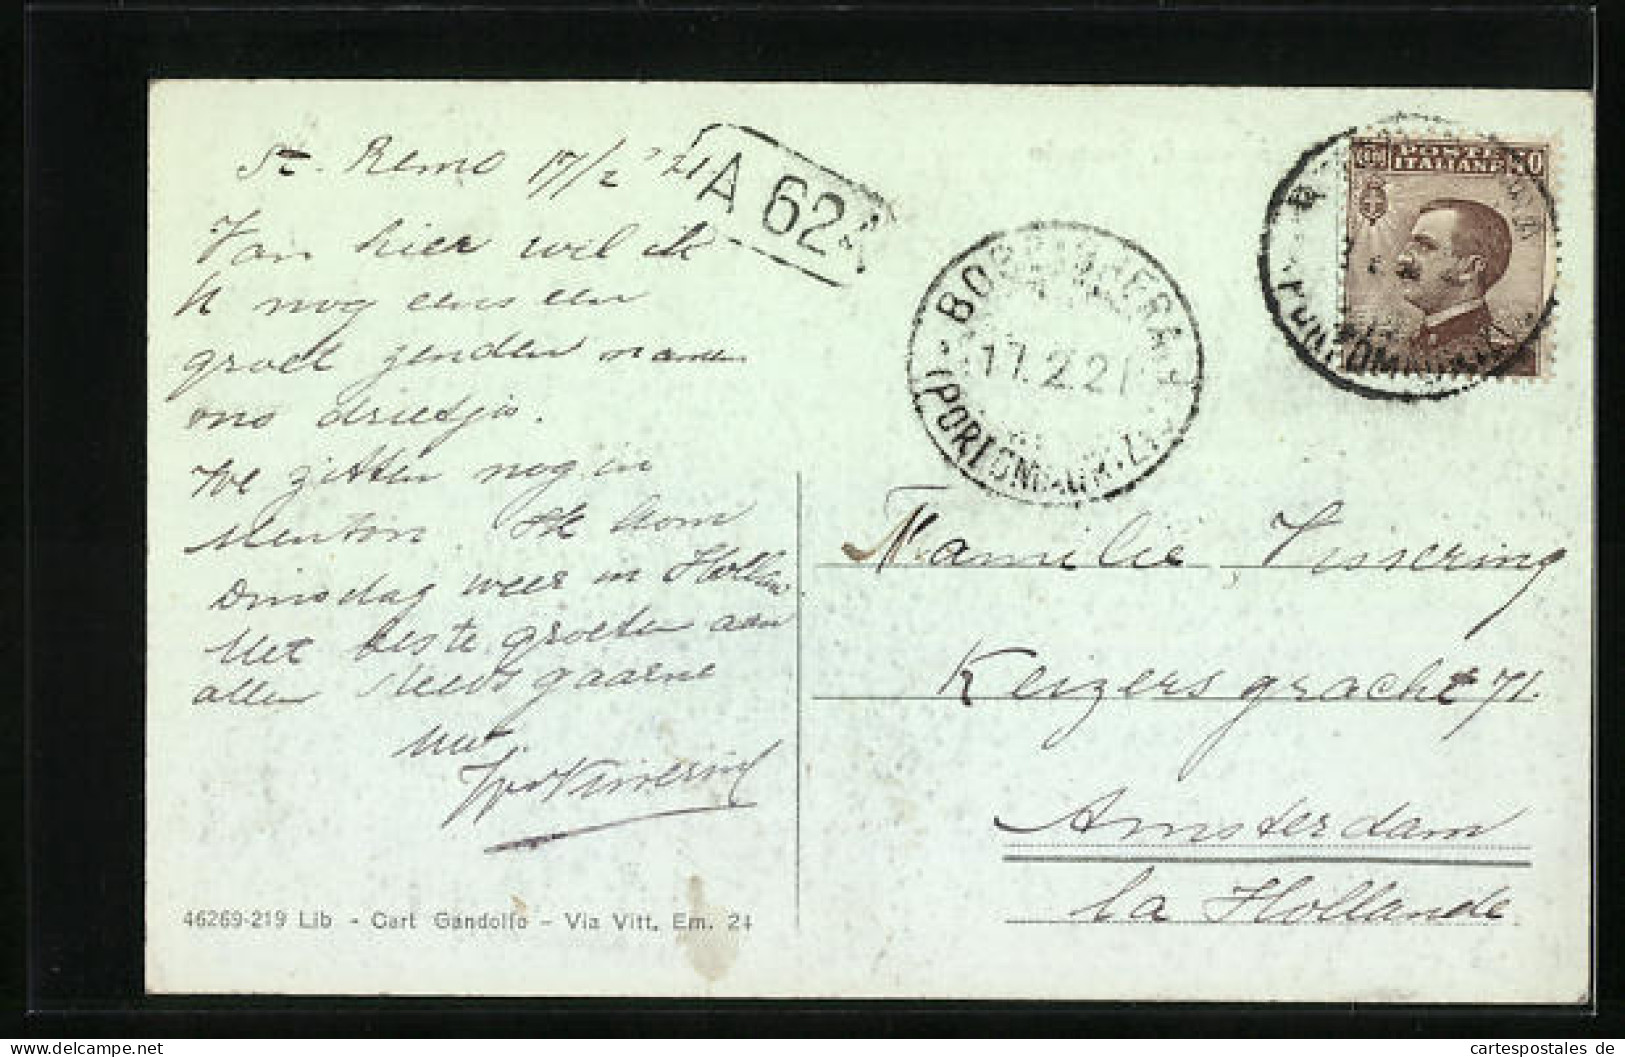 St. Remo 17/2 '21
Van hier wil ik
U nog eens een
groet zenden namen
ons drietjes.
We zitten nog in
Menton. Ik kom
Dinsdag weer in Holland.
Met beste groeten aan
allen steeds gaarne
Uw
A 62
BORDIGHERA
17.2.21
(PORTO MAURIZIO)
POSTE
ITALIANE
Familie Vissering
Keizersgracht 71.
Amsterdam
la Hollande
46269-219 Lib - Cart Gandolfo - Via Vitt. Em. 24
delcampe.net
cartespostales de